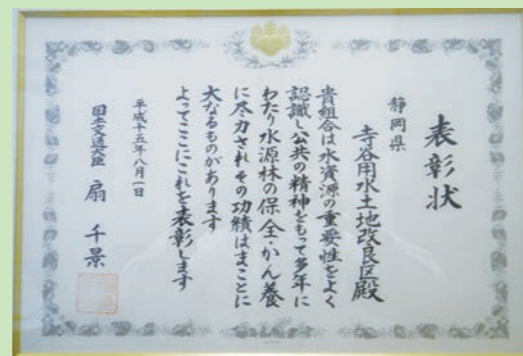 表彰状
静岡県
寺谷用水土地改良区殿
貴組合は水資源の重要性をよく
認識し公共の精神をもって多年に
わたり水源林の保全・かん養
に尽力されその功績はまことに
大なるものがあります
よってここにこれを表彰します
平成十五年八月一日
国土交通大臣 扇 千景